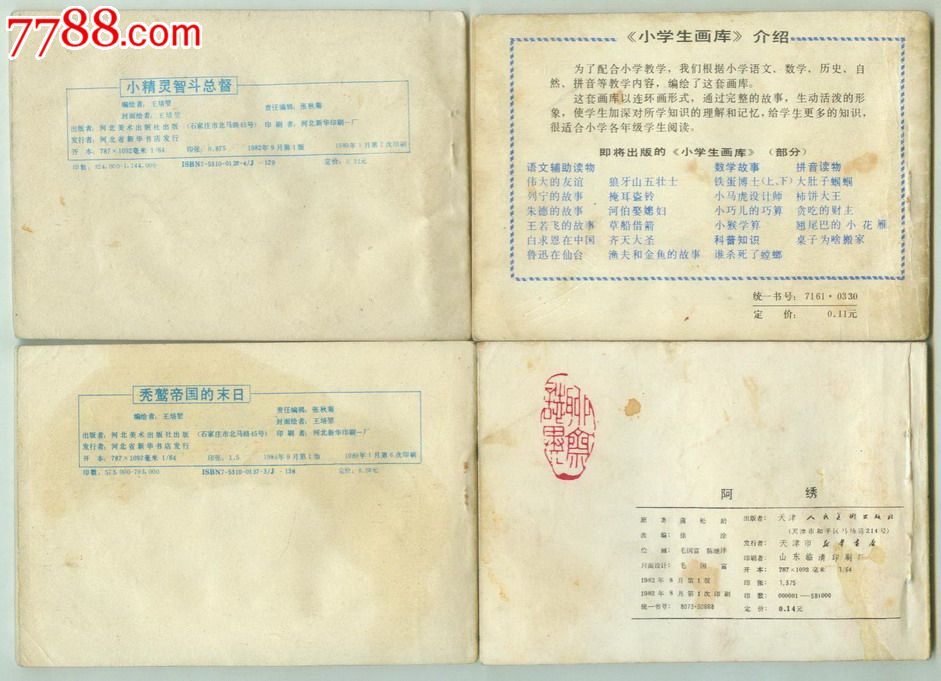 7788.com
小精灵智斗总督
编绘者：王培堃
责任编辑：张秋菊
封面绘者：王培堃
出版者：河北美术出版社出版 （石家庄市北马路45号） 印刷者：河北新华印刷一厂
发行者：河北省新华书店发行
开本：787×1092毫米 1/64 印张：0.875 1982年9月第1版
ISBN7-5310-0126-4/J·129
《小学生画库》介绍
为了配合小学教学，我们根据小学语文、数学、历史、自
然、拼音等教学内容，编绘了这套画库。
这套画库以连环画形式，通过完整的故事，生动活泼的形
象，使学生加深对所学知识的理解和记忆，给学生更多的知识，
很适合小学各年级学生阅读。
即将出版的《小学生画库》（部分）
语文辅助读物 数学故事 拼音读物
伟大的友谊 狼牙山五壮士 铁蛋博士（上、下） 大肚子蝈蝈
列宁的故事 掩耳盗铃 小马虎设计师 柿饼大王
朱德的故事 河伯娶媳妇 小巧儿的巧算 贪吃的财主
王若飞的故事 草船借箭 小猴学算 翘尾巴的小花雁
白求恩在中国 齐天大圣 科普知识 桌子为啥搬家
鲁迅在仙台 渔夫和金鱼的故事 谁杀死了螳螂
统一书号：7161·0330
定价：0.11元
秃鹫帝国的末日
编绘者：王培堃
责任编辑：张秋菊
封面绘者：王培堃
出版者：河北美术出版社出版 （石家庄市北马路45号） 印刷者：河北新华印刷一厂
发行者：河北省新华书店发行
开本：787×1092毫米 1/64 印张：1.5 1984年9月第1版 1989年1月第6次印刷
印数：575,000-795,000 ISBN7-5310-0137-3/J·138
聊斋志异
阿绣
原著 蒲松龄
改编 徐淦
绘画：毛国富 陈继泽
封面设计：毛国富
1982年8月第1版
1982年8月第1次印刷
统一书号：8073·50888
出版者：天津人民美术出版社
（天津市和平区马场道214号）
发行者：天津市新华书店
印刷者：山东临清印刷厂
开本：787×1092毫米 1/64
印张：1.375
印数：000001—581000
定价：0.14元